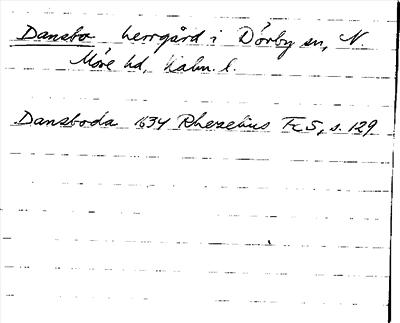 Dansbo herrgård i Dörby sn, N.
Möre hd, Kalm. l.
Dansboda 1634 Rhezelius Fc 5, s. 129